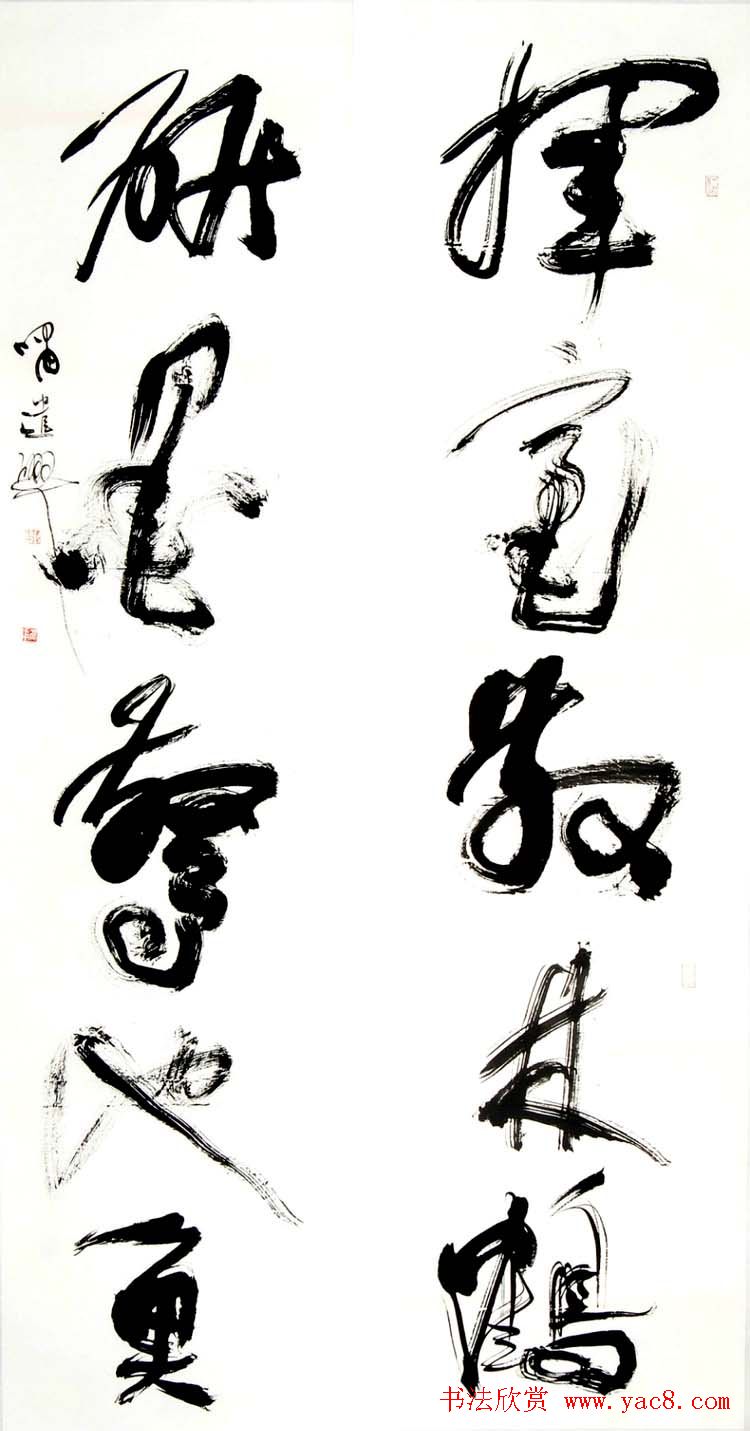 揮毫散林鶴
研墨驚池魚
書法欣赏 www.yac8.com